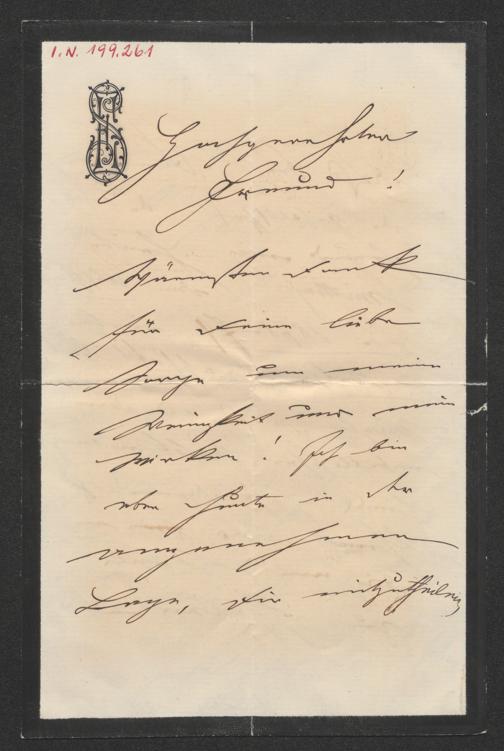 I.N. 199.261
Hochgeehrter
Freund!
Wärmsten Dank
für Deine liebe
Sorge um meine
Wenigkeit und mein
Wirken! Ich bin
eben heute in der
angenehmen
Lage, Dir mitzutheilen,